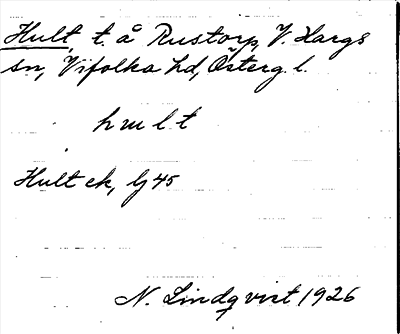 Hult, t. å Rustorp, V. Hargs
sn, Vifolka hd, Österg. l.
hult
Hult ek, bj 45
N. Lindqvist 1926